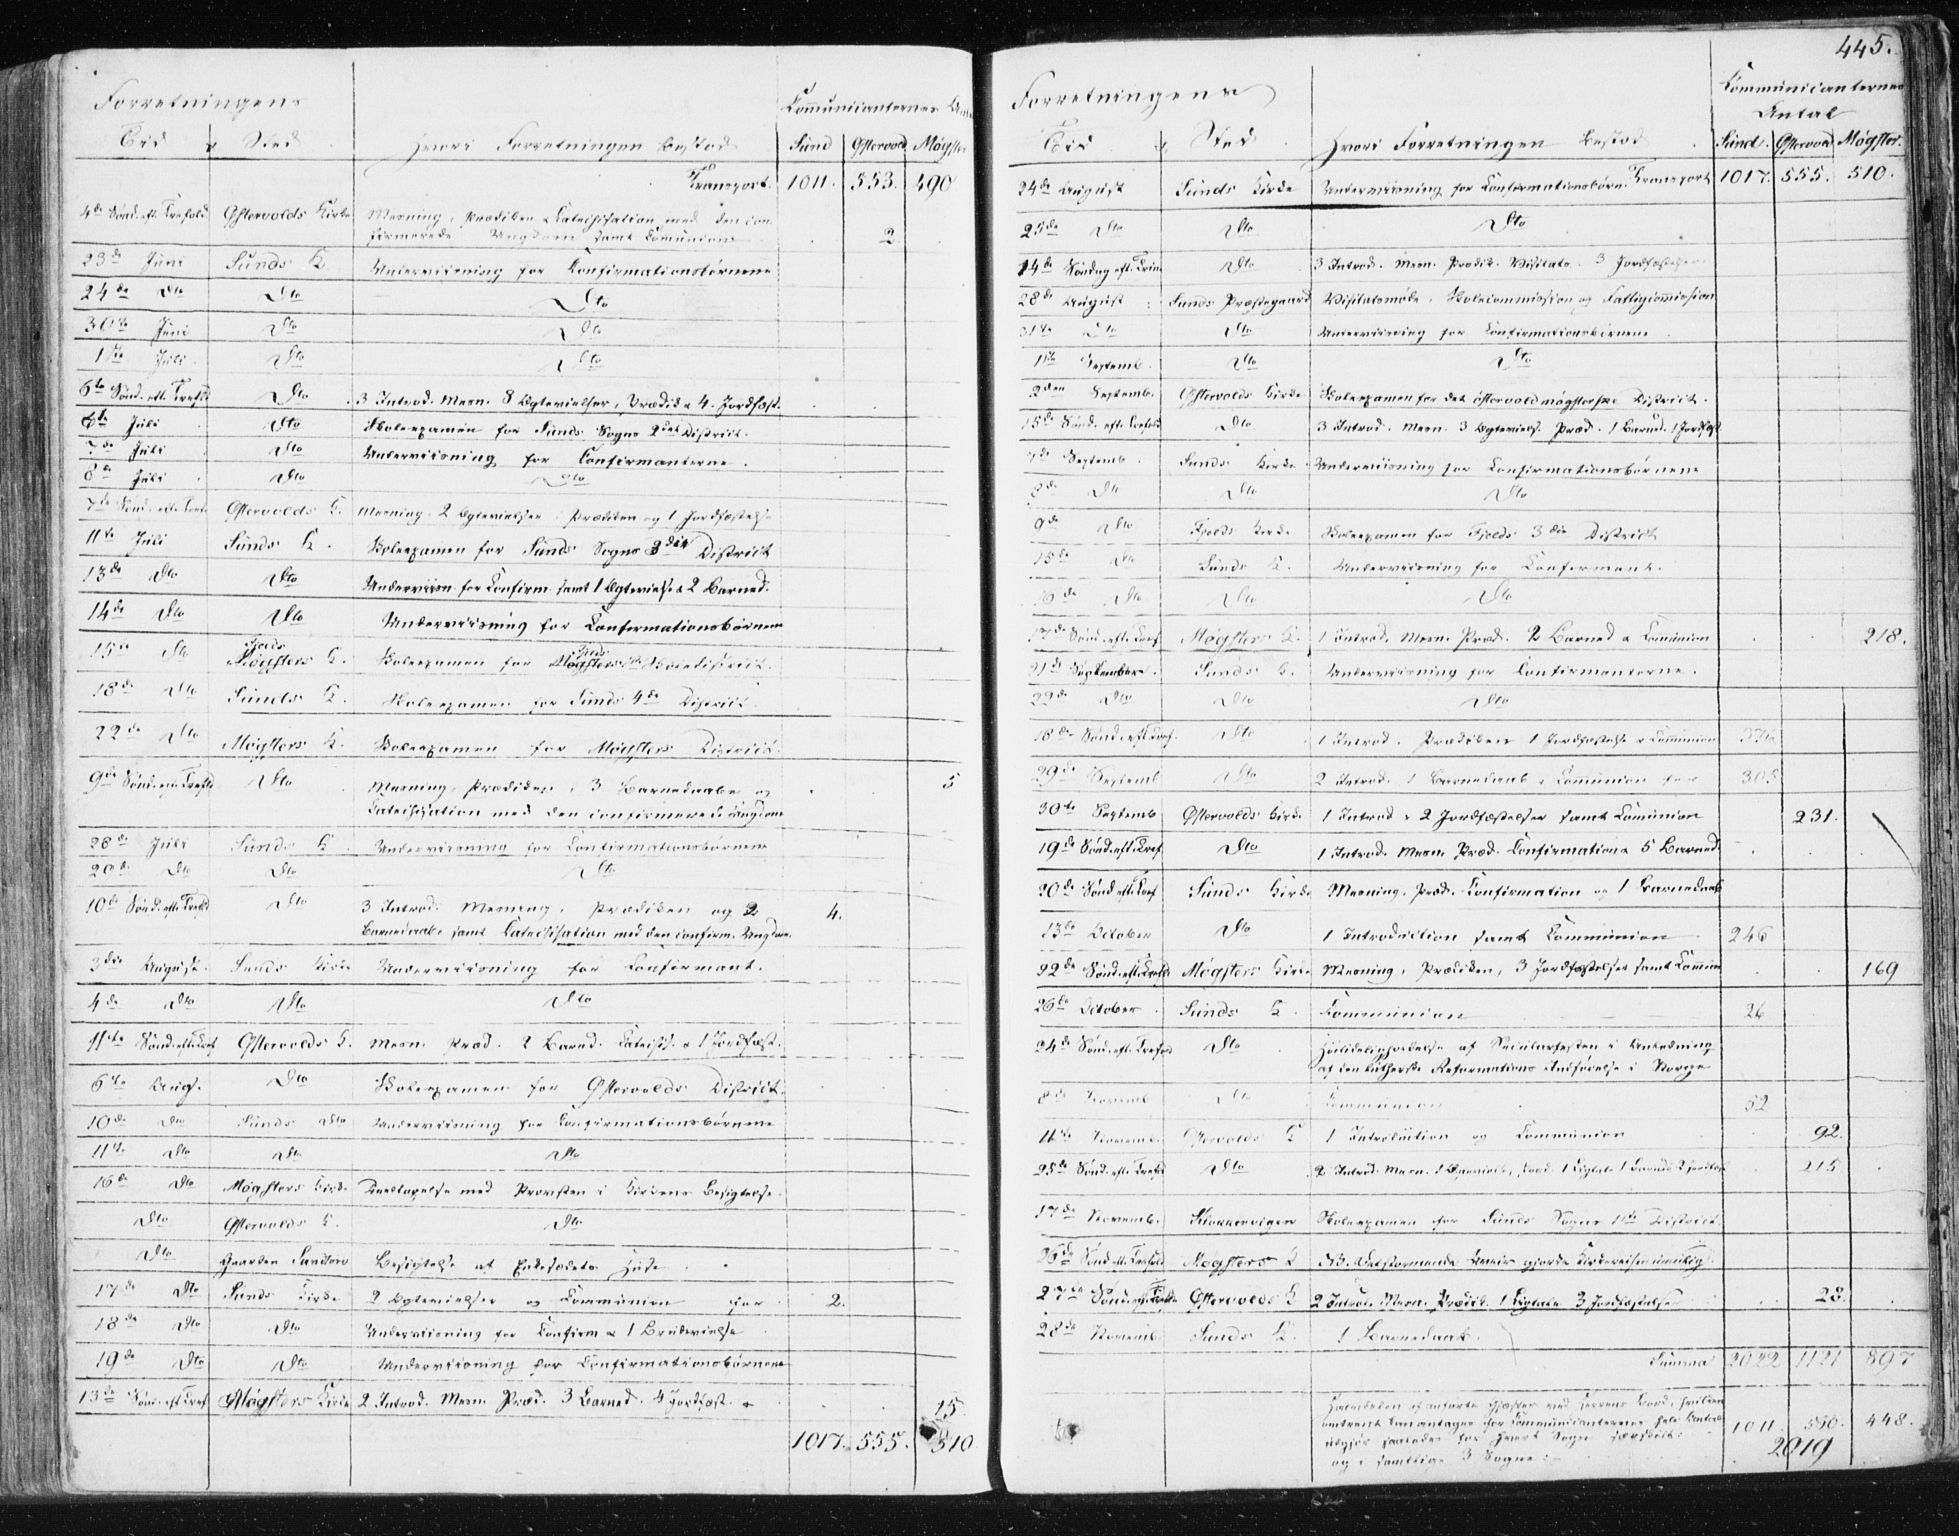 Forretningens
Communicanternes
Tid & Sted. Hvori Forretningen bestod Sund Østervold Møgster
Transport. 1011. 553. 490
4de Sønd. eft. Trefold. Østervolds Kirke Messning, Prædiken & Catechisation med den con
firmerede Ungdom samt Communion 2
23de Juni Sunds K Underviisning for Confirmationsbørnene
24de Dto Dto Dto
30te Juni Dto Dto
1ste Juli Dto Dto
6te Sønd. eft. Trefold Dto 3 Introd. Messn. 3 Ægtevielser, Prædik & 4 Jordfæst.
6te Juli Dto Skoleexamen for Sunds Sogns 2det District.
7de Juli Dto Underviisning for Confirmanterne.
8de Juli Dto Dto
7de Sønd. eft. Østervolds K. Messning. 2 Ægtevielser Prædiken og 1 Jordfæstelse
11te Juli Sunds K. Skoleexamen for Sunds Sogns 3die District
13de Dto Dto Underviisn. for Confirm. samt 1 Ægtevielse & 2 Barned.
14de Dto Dto Underviisning for Confirmationsbørnene
15de Dto Møgsters K. Skoleexamen for Skoledistrict.
18de Dto Sunds K. Skoleexamen for Sunds 4de District.
22de Dto Møgsters K. Skoleexamen for Møgsters District.
9de Sønd. eft. Trefold Dto Messning, Prædiken, 3 Barnedaabe og 5
Catechisation med den confirmerede Ungdom
28de Juli Sunds K. Underviisning for Confirmationsbørnene
29de Dto Dto Dto
10de Sønd. eft. Trefold Dto 3 Introd. Messning, Prædiken og 2 4.
Barnedaab samt Catechisation med den confirm. Ungdom
3die August. Sunds Kirke Underviisning for Confirmant.
4de Dto Dto Dto
11te Sønd. eft. Tref Østervolds K. Messn. Præd. 2 Barned. Catechis. & 1 Jordfæst.
6te Aug. Dto Skoleexamen for Østervolds District.
10de Dto Sunds Dto Underviisning for Confirmationsbørnene
11te Dto Dto Dto
16de Dto Møgsters Kirke Deeltagelse med Provsten i Kirkens Besigtelse.
Dto Østervolds K. Dto
Dto Gaarden Besigtelse af Enkesædets Huse
17de Dto Sunds Kirke 2 Ægtevielser og Communion for 2.
18de Dto Dto Underviisning for Confirm & 1 Brudevielse
19de Dto Dto Underviisning for Confirmationsbørnene
13de Sønd. eft. Tref Møgsters Kirke 2 Introd. Messn. Præd. 3 Barned. 4 Jordfæst. 15
1017. 555. 510
445.
Forretningens Communicanternes
Antal
Tid & Sted Hvori Forretningen bestod Sund. Østervold Møgster.
24de August Sunds Kirke Underviisning for Confirmationsbørn. Transport 1017. 555. 510.
25de Dto Dto Dto
14de Søndag eft. Trin Dto 3 Introd. Messn. Prædik. Visitats. 3 Jordfæstelser
28de August Sunds Præstegaard Visitatsmøde, Skolecommission og Fattigcommission
31te Dto Dto Underviisning for Confirmationsbørnene
1ste Septemb. Dto Dto
2den Septemb. Østervolds Kirke Skoleexamen for det østervold møgsterske District.
15de Sønd. eft. Trefold Dto 3 Introd. Messn. 3 Ægteviels. Præd. 1 Barned. 1 Jordfæst
7de Septemb. Sunds Kirke Underviisning for Confirmationsbørnene
8de Dto Dto Dto
9de Dto Fjelds Kirke Skoleexamen for Fjelds 3die District
15de Dto Sunds K. Underviisning for Confirmant.
16de Dto Dto Dto
17de Sønd. eft. Tref Møgsters K. 1 Introd. Messn. Præd. 2 Barned & Communion 218.
21de September. Sunds K. Underviisning for Confirmanterne.
22de Dto Dto Dto
18de Sønd. eft. Tref. Dto 1 Introd. Prædiken 1 Jordfæstelse & Communion
29de Septemb Dto 2 Introd. 1 Barnedaab & Communion for 305
30te Septemb Østervolds Kirke 1 Introd & 2 Jordfæstelser samt Communion 231.
19de Sønd. eft. Tref. Dto 1 Introd. Messn. Præd. Confirmation & 5 Barned.
20de Sønd. eft. Tref Sunds Kirke Messning, Præd. Confirmation og 1 Barnedaab
13de October Dto 1 Introduction samt Communion 246
22de Sønd. eft. Trefold Møgsters Kirke Messning, Prædiken, 3 Jordfæstelser samt Commun 169
26de October Sunds K. Communion 26
24de Sønd. eft. Trefold Dto Høitideligholdelse af Secularfesten i Anledning
af den lutherske Reformations Indførelse i Norge
8de Novemb Dto Communion 52
11te Novemb. Østervolds K 1 Introduction og Communion 92.
25de Sønd. eft. Trefold Dto 2 Introd. Messn. 215
17de Novemb. Klokkervigen Skoleexamen for Sunds Sogns 1ste District.
26de Sønd. eft. Trefold Møgsters K NB. gjorde Kirkereisen umulig.
27de Sønd. eft. Trefold Østervolds K 2 Introd. Messn. Prædik. 3 Jordfæstelser 28.
28de Novemb. Sunds K. 1 Barnedaab.
Summa 2022 1121 897
Halvdelen anførte Gjæster ved Herrens Bord, hvilken
omtrent kan antages for Communicanternes hele Antal
udgjør saaledes for hvert Sogn særskilt: 1011 560 448.
og i samtlige 3 Sogne: 2019